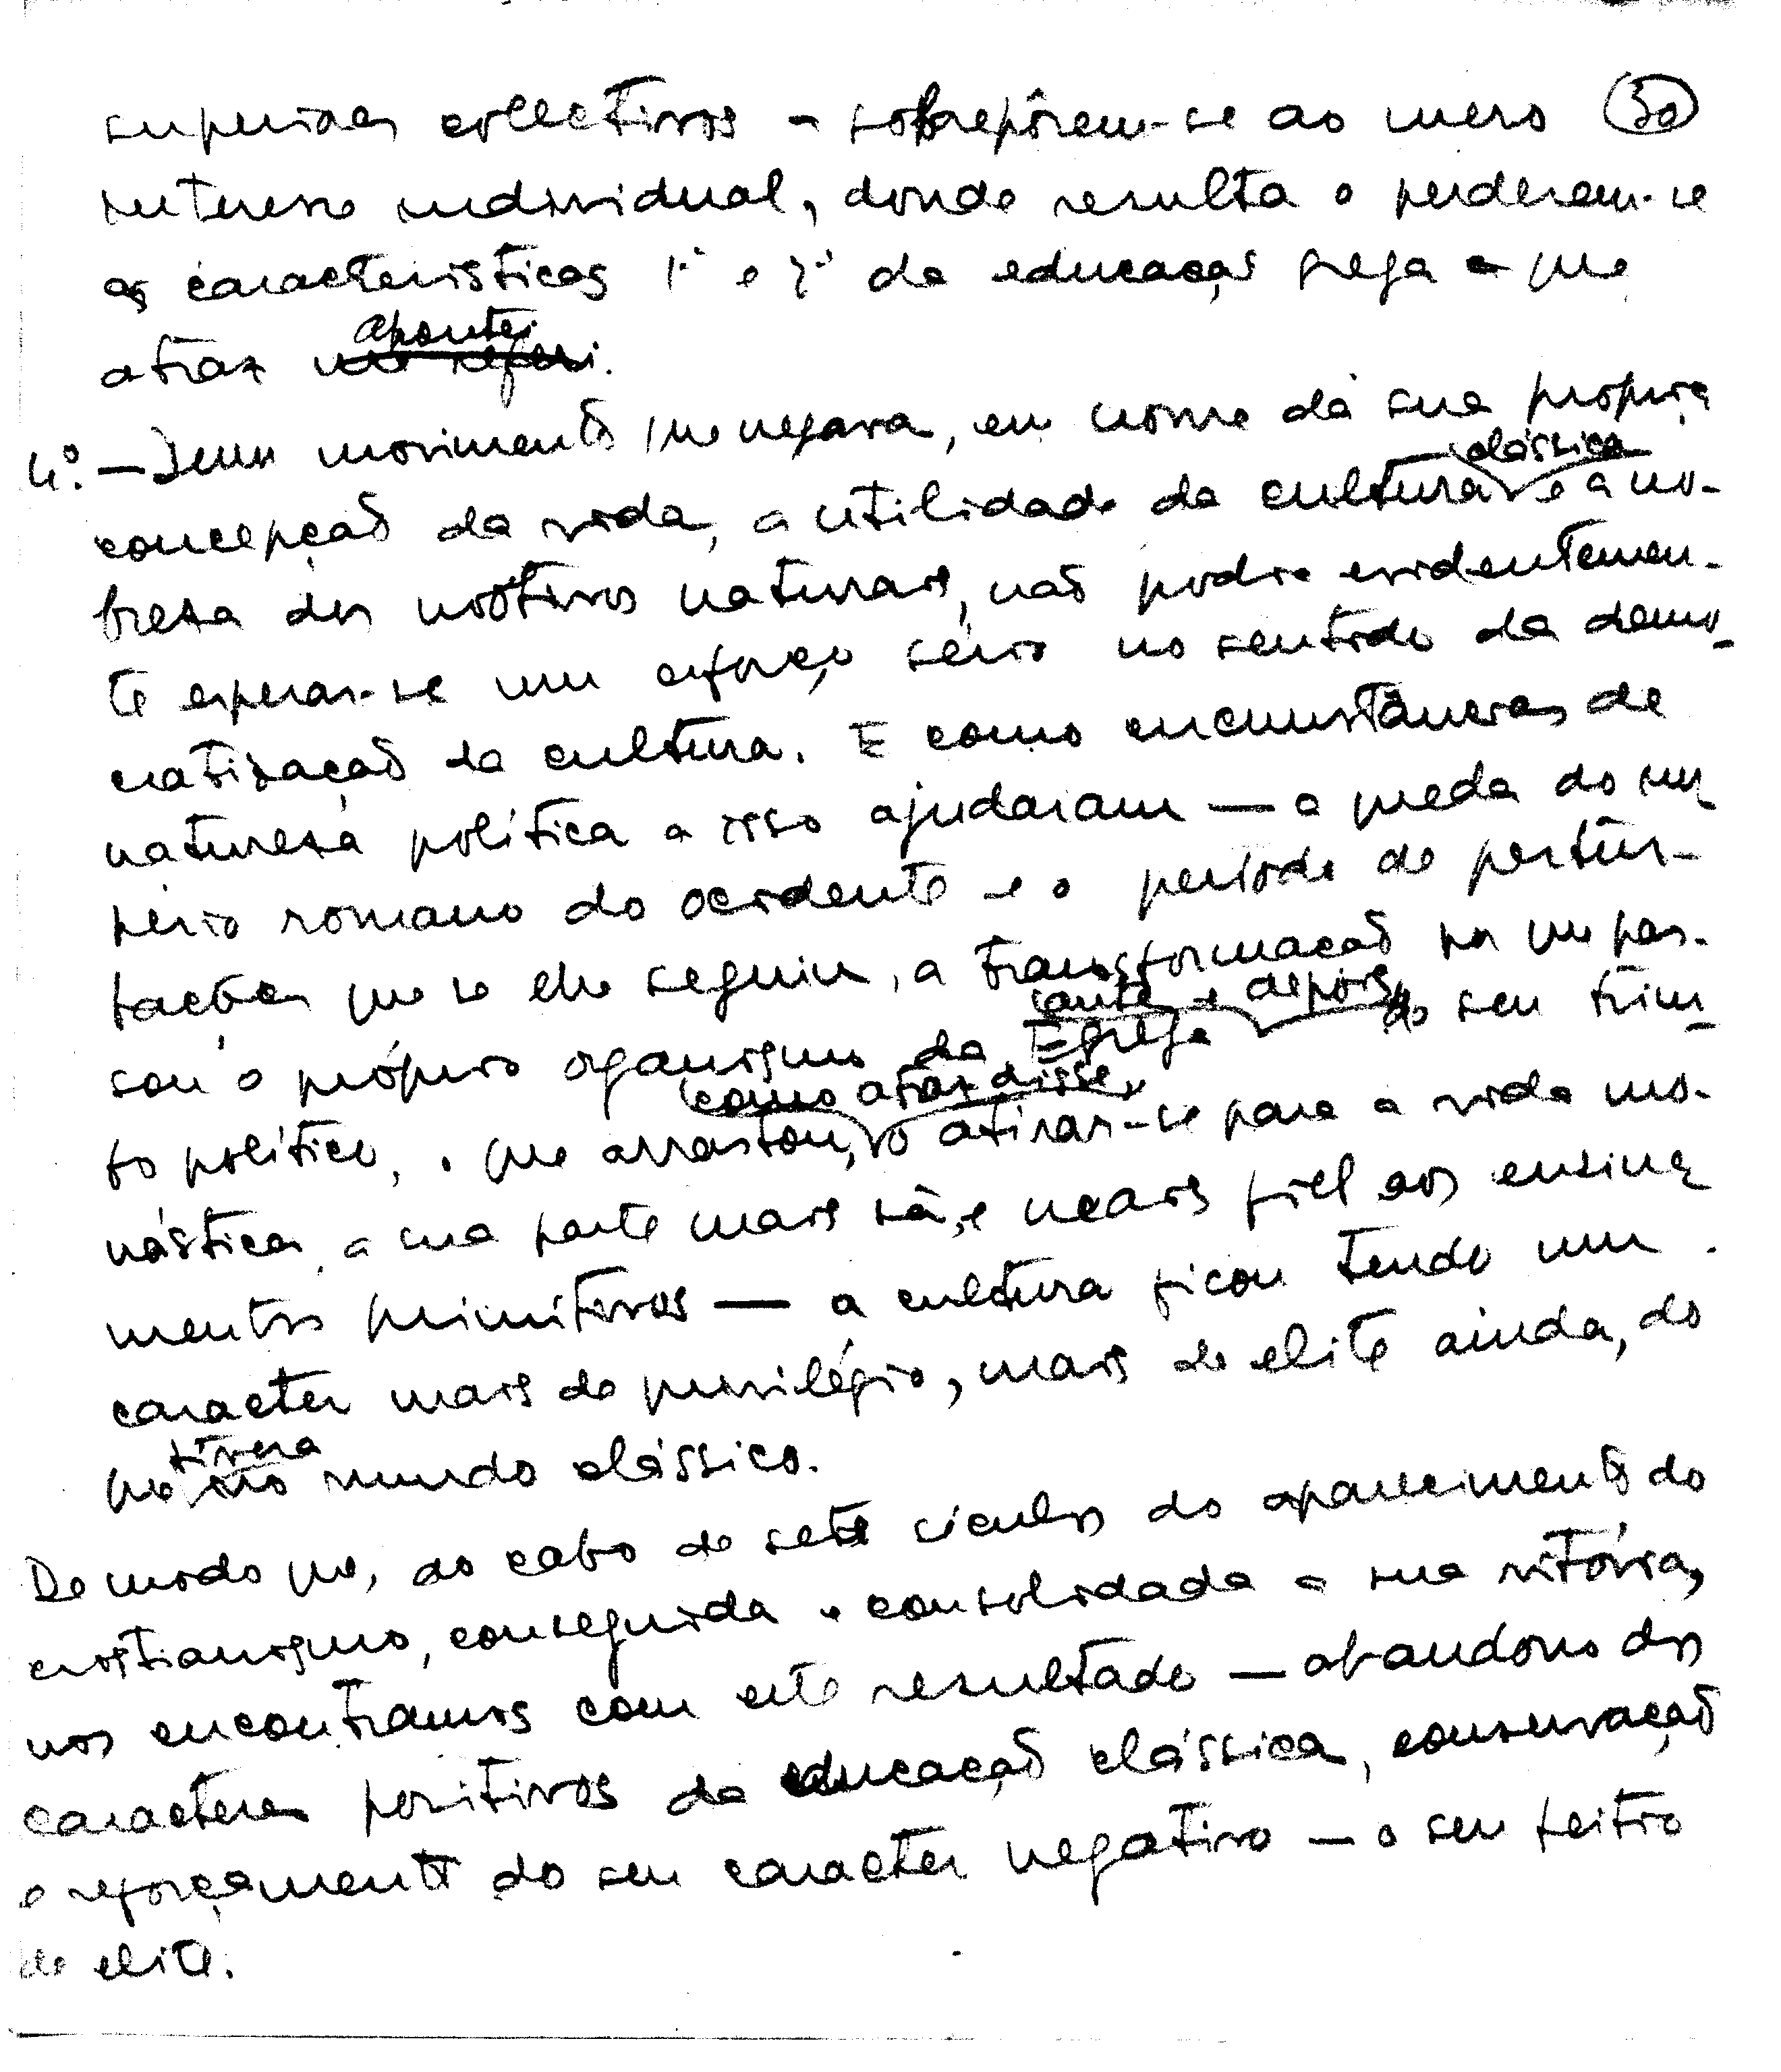 superiores collectivos - sobrepôrem-se ao mero 30
interesse individual, donde resulta o perderem-se
as caracteristicas 1.ª e 2.ª da educação grega a que
atraz apontei.
4.º - Dum movimento que negava, em nome da sua propria
concepção da vida, a utilidade da cultura clássica e a no-
breza dos motivos naturais, não podia evidentemen-
te esperar-se um esforço sério no sentido da demo-
cratização da cultura. E como circunstâncias de
natureza política a isso ajudaram — a queda do im-
pério romano do ocidente e o período de pertur-
bações que se lhe seguiu, a transformação por que pas-
sou o próprio organismo da Egreja antes e depois do seu triun-
fo político, o que arrastou, como atraz disse, o atirar-se para a vida mo-
nástica, a sua parte mais sã, e mais fiel aos ensina
mentos primitivos — a cultura ficou tendo um
caracter mais de privilégio, mais de elite ainda, do
que tivera no mundo clássico.
De modo que, ao cabo de sete séculos do aparecimento do
cristianismo, conseguida e consolidada a sua vitória,
nos encontramos com este resultado — abandono dos
caracteres positivos da educação clássica, conservação
e reforçamento do seu caracter negativo — o seu feitio
de elite.